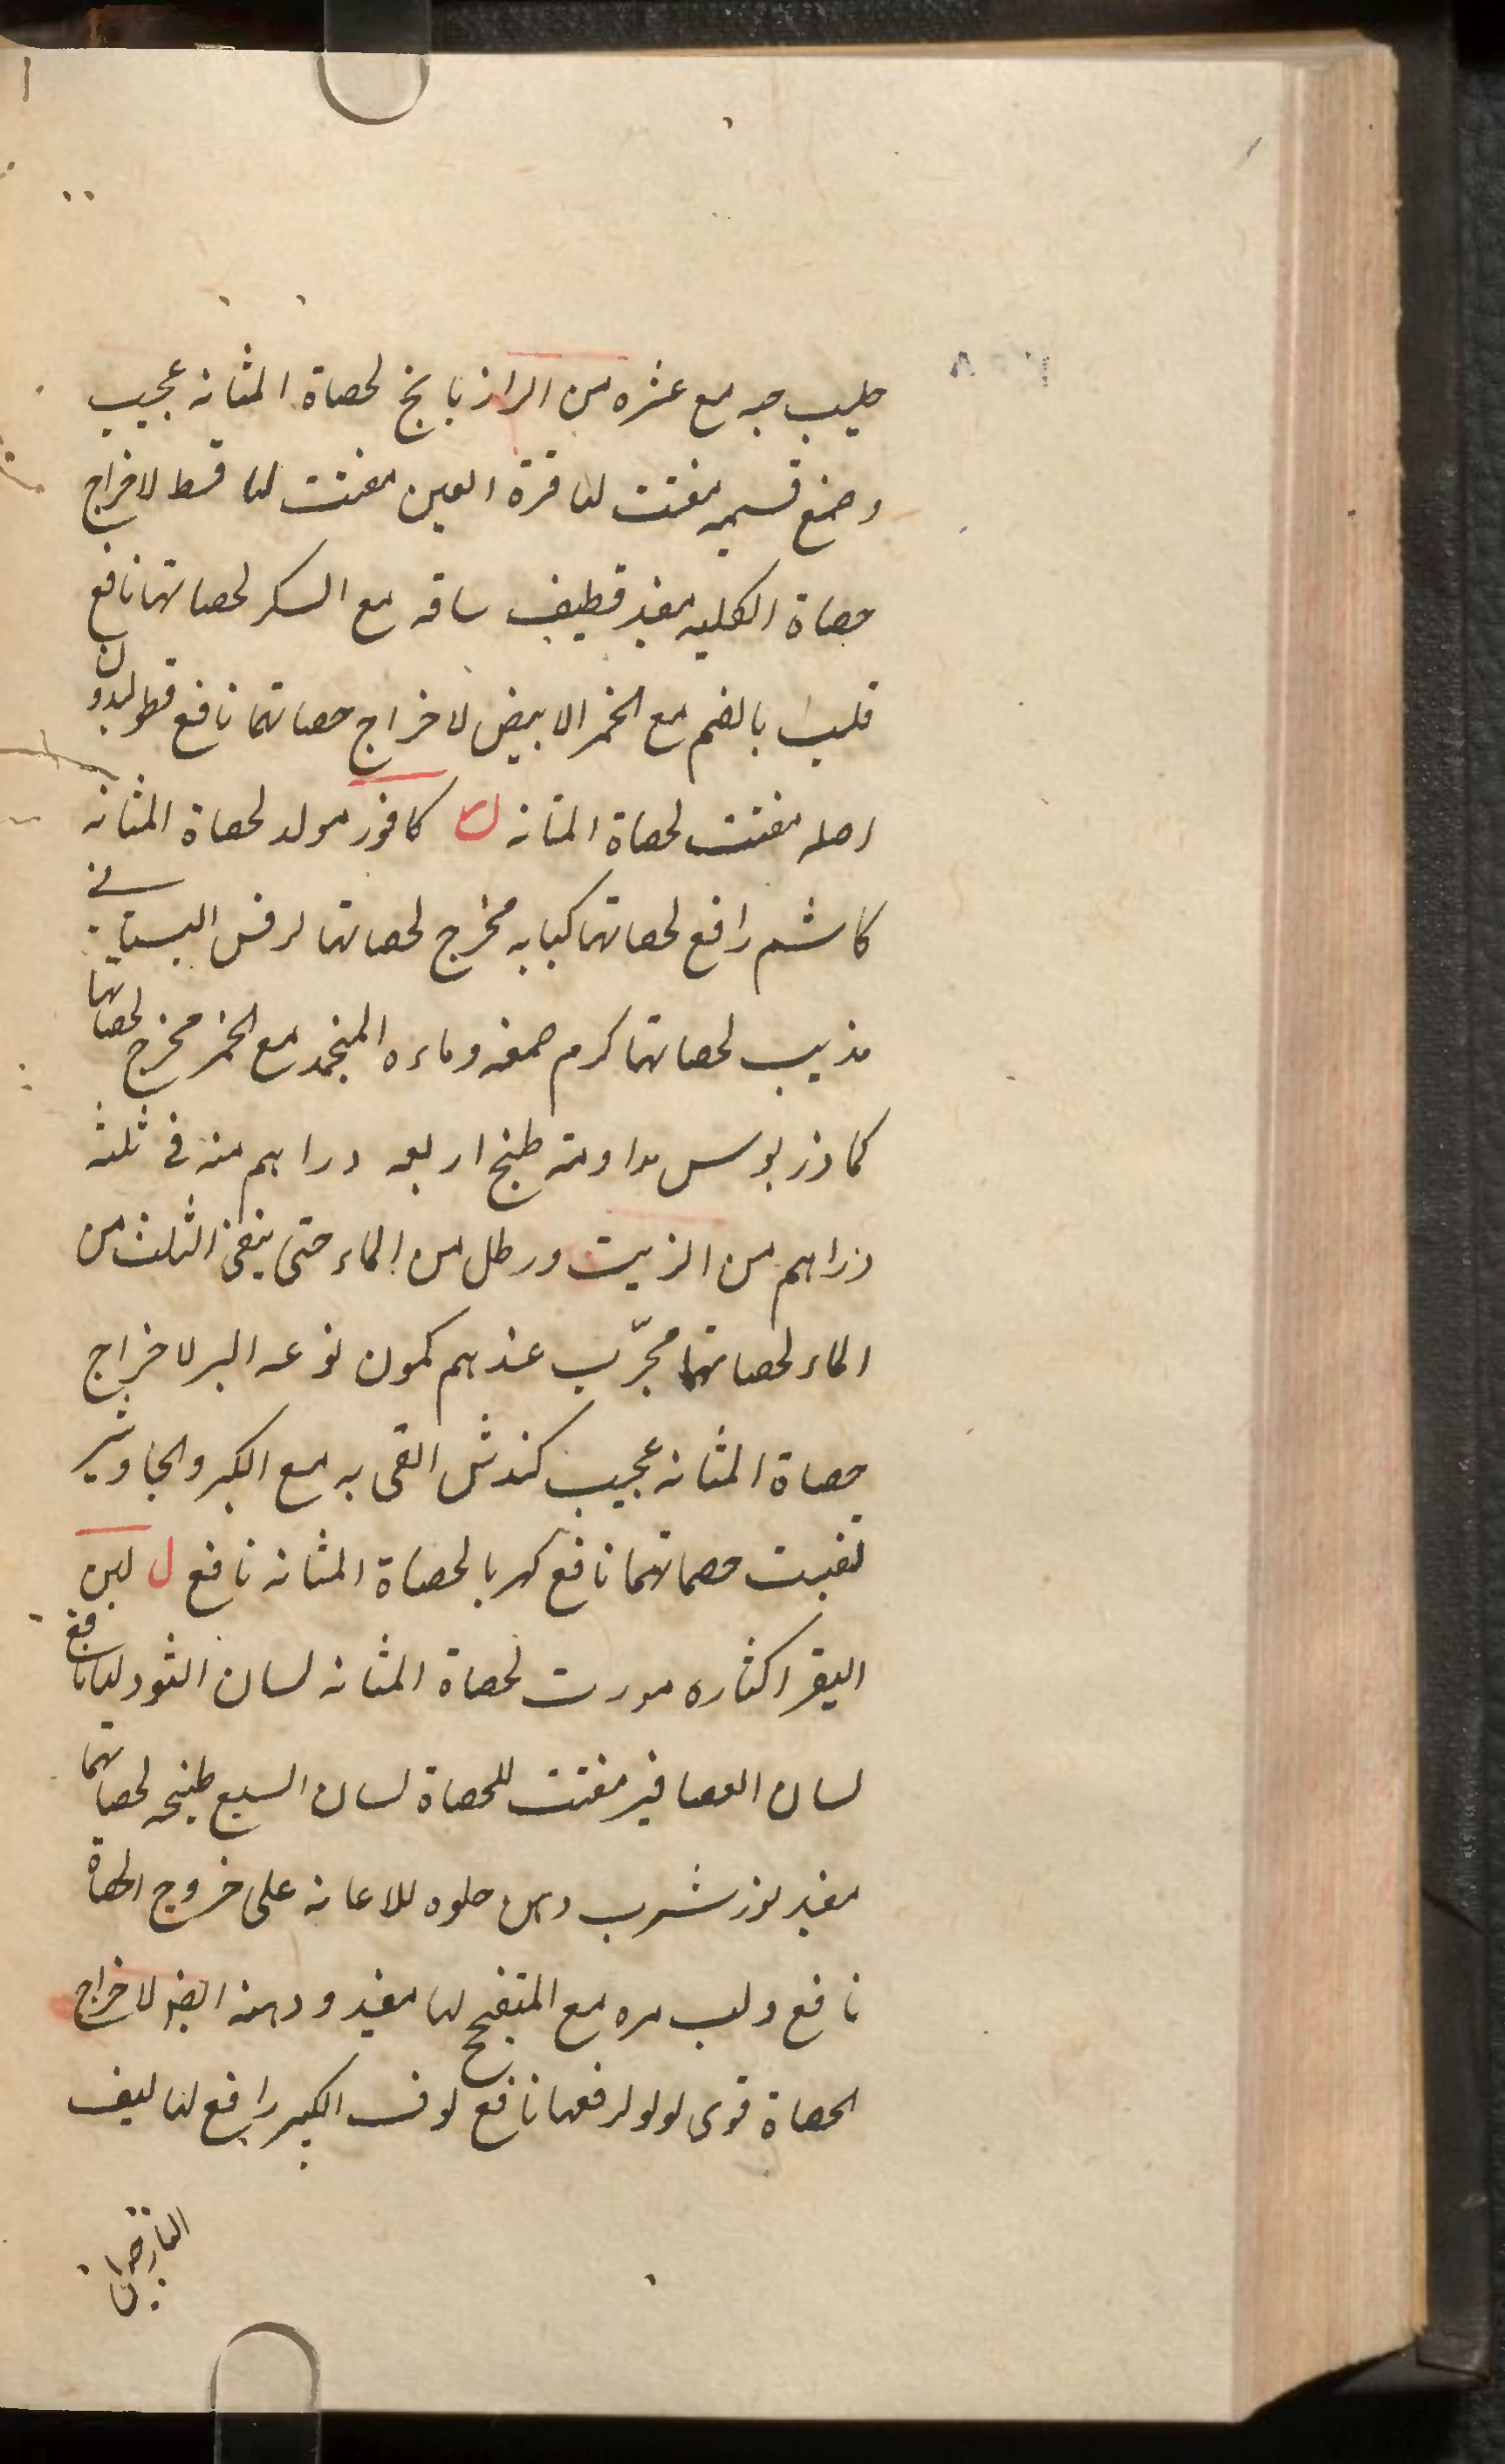 حليب حبه مع عشره من الرازيانج لحصاة المثانه عجيب
وصمغ قسميه مفتت لها قرة العين مفتت لها قسط لاخراج
حصاة الكليه مفيد قطيف ساقه مع السكر لحصاتهما نافع
قلب بالضم مع الخمر الابيض لاخراج حصاتهما نافع قطوليدون
اصله مفتت لحصاة المثانه ك كافور مولد لحصاة المثانه
كاشم رافع لحصاتهما كبابه مخرج لحصاتهما كرفس البستاني
مذيب لحصاتهما كرم صمغه وماءه المنجمد مع الخمر مخرج لحصاتهما
كمادزيوس مداومة طبخ اربعه دراهم منه فى ثلثه
دراهم من الزيت ورطل من الماء حتى يبقى الثلث من
الماء لحصاتهما مجرّب عندهم كمون نوعه البر لاخراج
حصاة المثانه عجيب كندش القى به مع الكبر والجاوشير
تفتيت حصاتهما نافع كهربا لحصاة المثانه نافع ل لبن
البقر اكثاره مورث لحصاة المثانه لسان الثور لها نافع
لسان العصافير مفتت للحصاة لسان السبع طبخه لحصاتهما
مفيد لوز شرب دهن حلوه للاعانه على خروج الحصاة
نافع ولب مره مع لها مفيد ودهنه ايضا لاخراج
الحصاة قوى لولو لرفعها نافع لوف الكبير رافع لها ليف
النارجيل